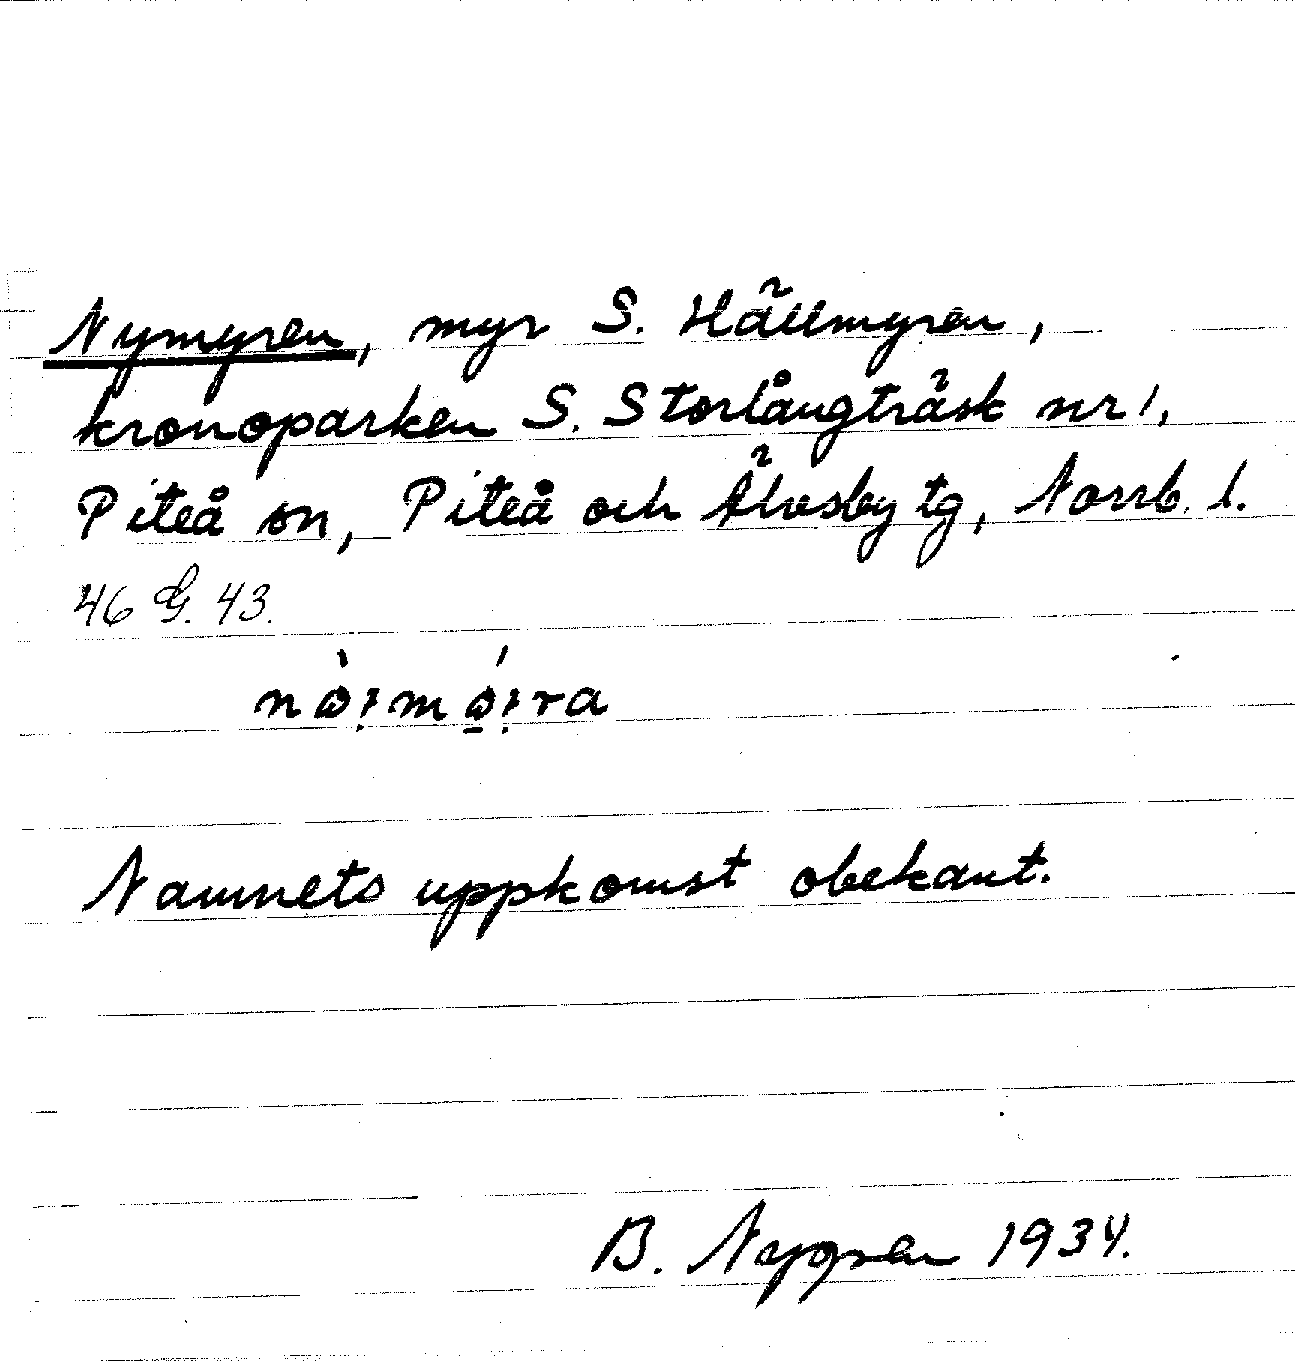 Nymyren, myr S. Hällmyren,
kronoparken S. Storlångträsk nr 1,
Piteå sn, Piteå och Älvsby tg, Norrb. l.
46 G. 43.
Namnets uppkomst obekant.
B. Nygren 1934.